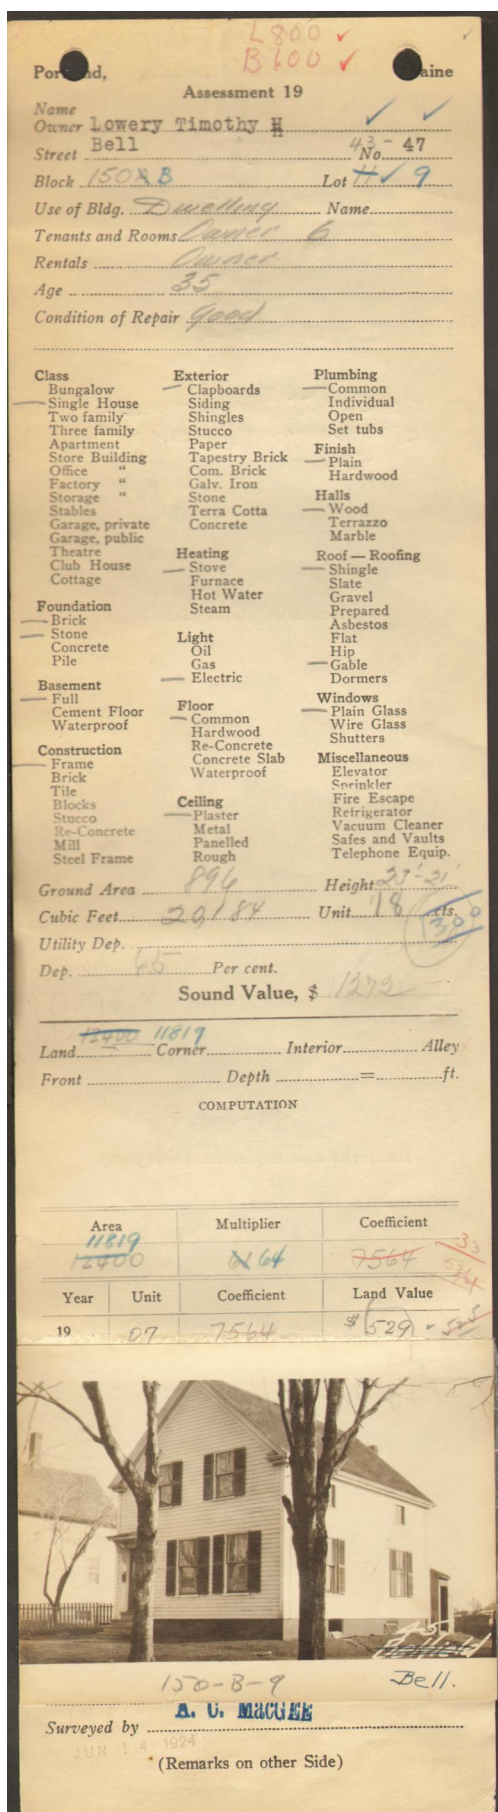 L800 ✓
B600 ✓
Por nd, aine
Assessment 19
Name
Owner Lowery Timothy H
Street Bell No. 43 - 47
Block 150 B Lot 9
Use of Bldg. Dwelling Name
Tenants and Rooms Owner 6
Rentals Owner
Age 35
Condition of Repair Good
Class
Bungalow
Single House
Two family
Three family
Apartment
Store Building
Office "
Factory "
Storage "
Stables
Garage, private
Garage, public
Theatre
Club House
Cottage
Foundation
Brick
Stone
Concrete
Pile
Basement
Full
Cement Floor
Waterproof
Construction
Frame
Brick
Tile
Blocks
Stucco
Re-Concrete
Mill
Steel Frame
Exterior
Clapboards
Siding
Shingles
Stucco
Paper
Tapestry Brick
Com. Brick
Galv. Iron
Stone
Terra Cotta
Concrete
Heating
Stove
Furnace
Hot Water
Steam
Light
Oil
Gas
Electric
Floor
Common
Hardwood
Re-Concrete
Concrete Slab
Waterproof
Ceiling
Plaster
Metal
Panelled
Rough
Plumbing
Common
Individual
Open
Set tubs
Finish
Plain
Hardwood
Halls
Wood
Terrazzo
Marble
Roof — Roofing
Shingle
Slate
Gravel
Prepared
Asbestos
Flat
Hip
Gable
Dormers
Windows
Plain Glass
Wire Glass
Shutters
Miscellaneous
Elevator
Sprinkler
Fire Escape
Refrigerator
Vacuum Cleaner
Safes and Vaults
Telephone Equip.
Ground Area 896 Height 23'-21'
Cubic Feet 20,184 Unit 18 cts.
Utility Dep.
Dep. 65 Per cent.
Sound Value, $ 1272
12400 11819
Land Corner Interior Alley
Front Depth = ft.
COMPUTATION
Area Multiplier Coefficient
11819
12400 64 7564
Year Unit Coefficient Land Value
19 07 7564 $ 529
Bell.
150-B-9
Surveyed by A. C. MacGEE
JUN 14 1924
(Remarks on other Side)